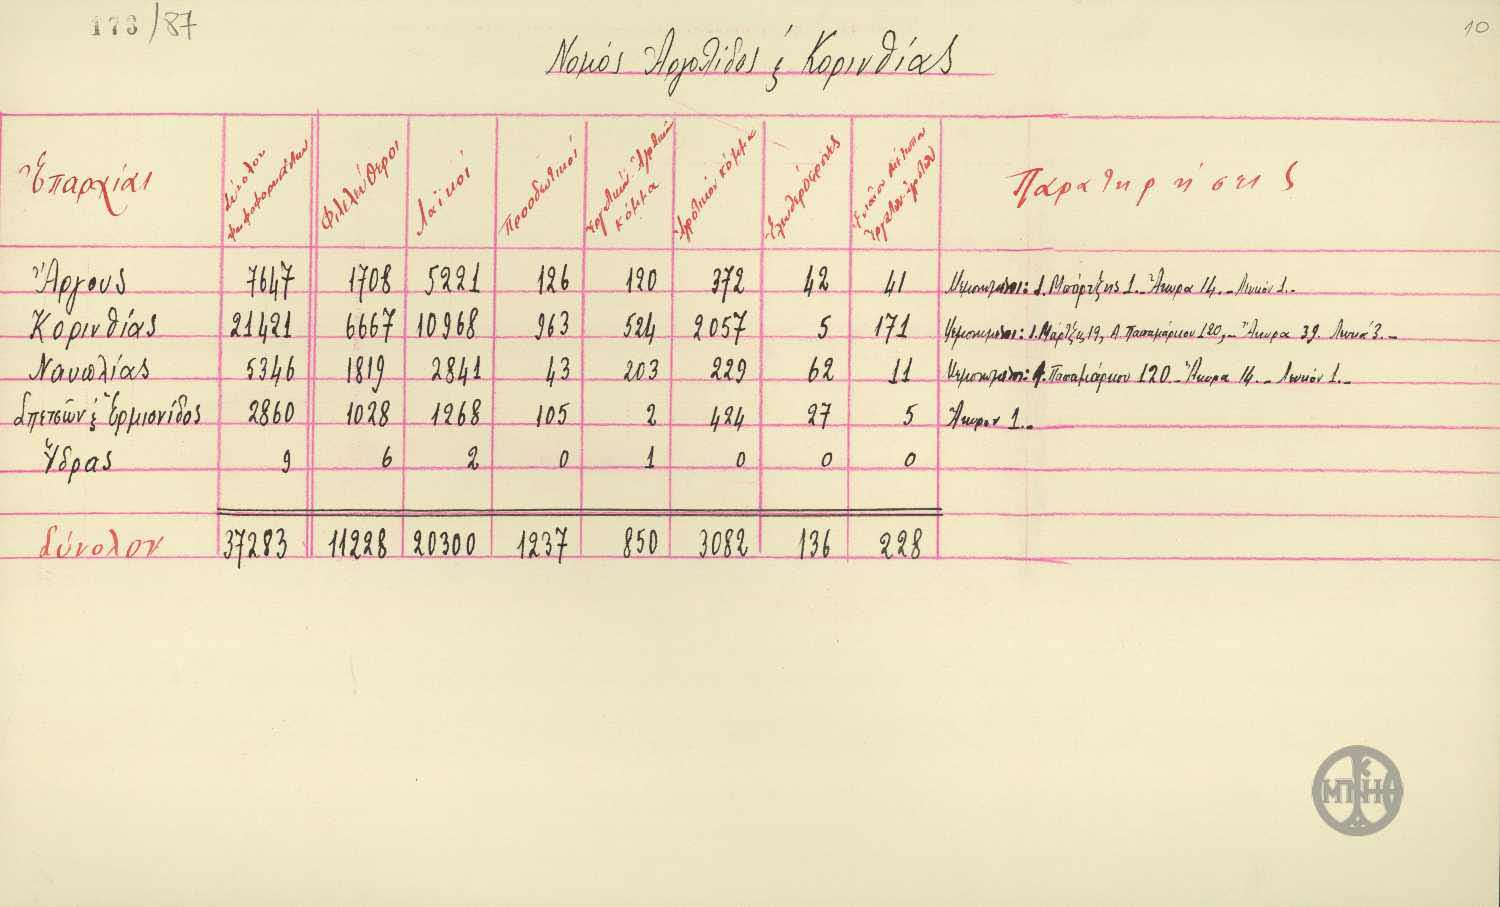 173/87
10
Νομὸς Ἀργολίδος & Κορινθίας
Ἐπαρχίαι Σύνολον ψηφοφορησάντων Φιλελεύθεροι Λαϊκοί Προοδευτικοί Ἐργατικὸν Ἀγροτικὸν κόμμα Ἀγροτικὸν κόμμα Ἐλευθερόφρονες Ἑνιαῖον μέτωπον Ἐργατῶν-ἀγροτῶν Παρατηρήσεις
Ἄργους 7647 1708 5221 126 120 372 42 41 Μεμονωμένοι: 1. Ἄκυρα 14.- Λευκόν 1.-
Κορινθίας 21421 6667 10968 963 524 2057 5 171 Μεμονωμένοι: 19, Α. 120,- Ἄκυρα 39. Λευκά 3.-
Ναυπλίας 5346 1819 2841 43 203 229 62 11 Μεμονωμένοι: 120- Ἄκυρα 14.- Λευκόν 1.-
Σπετσῶν & Ἑρμιονίδος 2860 1028 1268 105 2 424 27 5 Ἄκυρον 1.-
Ὕδρας 9 6 2 0 1 0 0 0
Σύνολον 37283 11228 20300 1237 850 3082 136 228